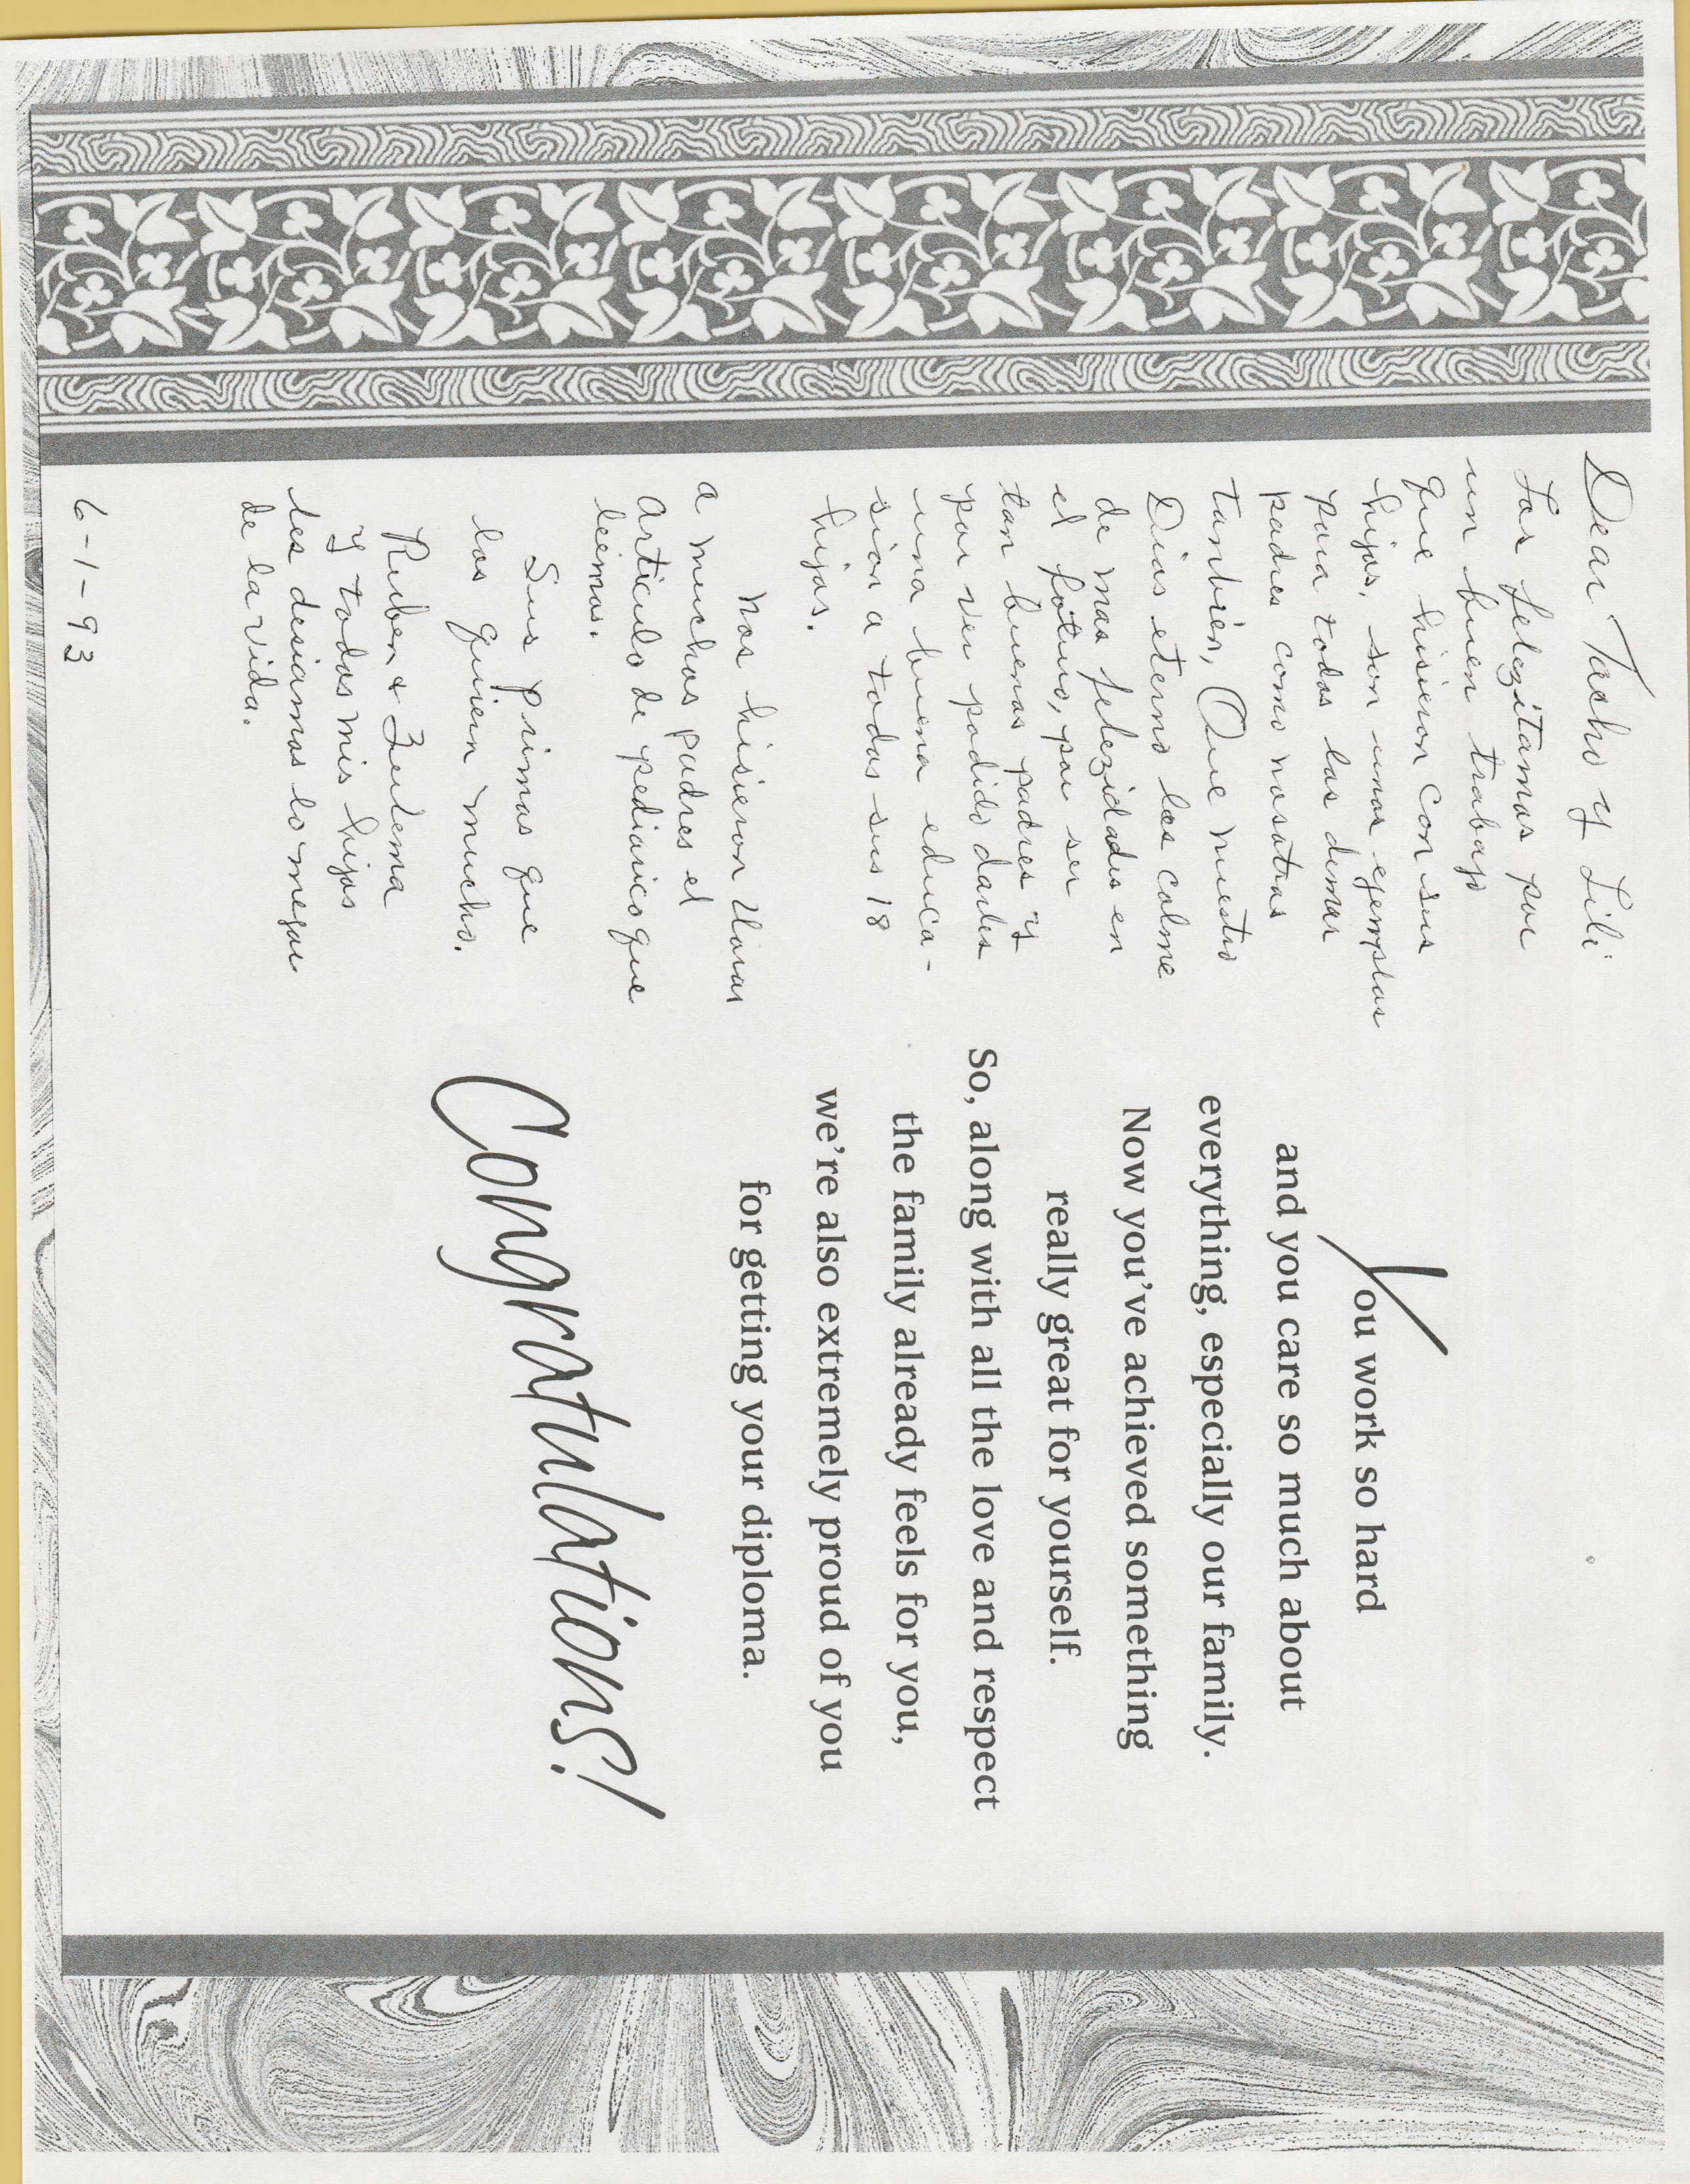 Dear Tacho y Lili
Los felezitamos por
un buen trabajo
que hisieron con sus
hijos, son unos ejemplos
para todos los demas
padres como nosotros
también, Que nuestro
Dios eterno los colme
de mas felezidades en
el foturo, por ser
tan buenos padres y
por ver podido darles
una buena educa-
sion a todos sus 18
hijos.
Nos hisieron llorar
a muchos padres el
Articulo de pediarico que
leémos.
Sus primos que
los quiern mucho.
Ruben & Zulema
Y todos mis hijos
les desiamos lo mejor
de la vida.
6-1-93
You work so hard
and you care so much about
everything, especially our family.
Now you've achieved something
really great for yourself.
So, along with all the love and respect
the family already feels for you,
we're also extremely proud of you
for getting your diploma.
Congratulations!